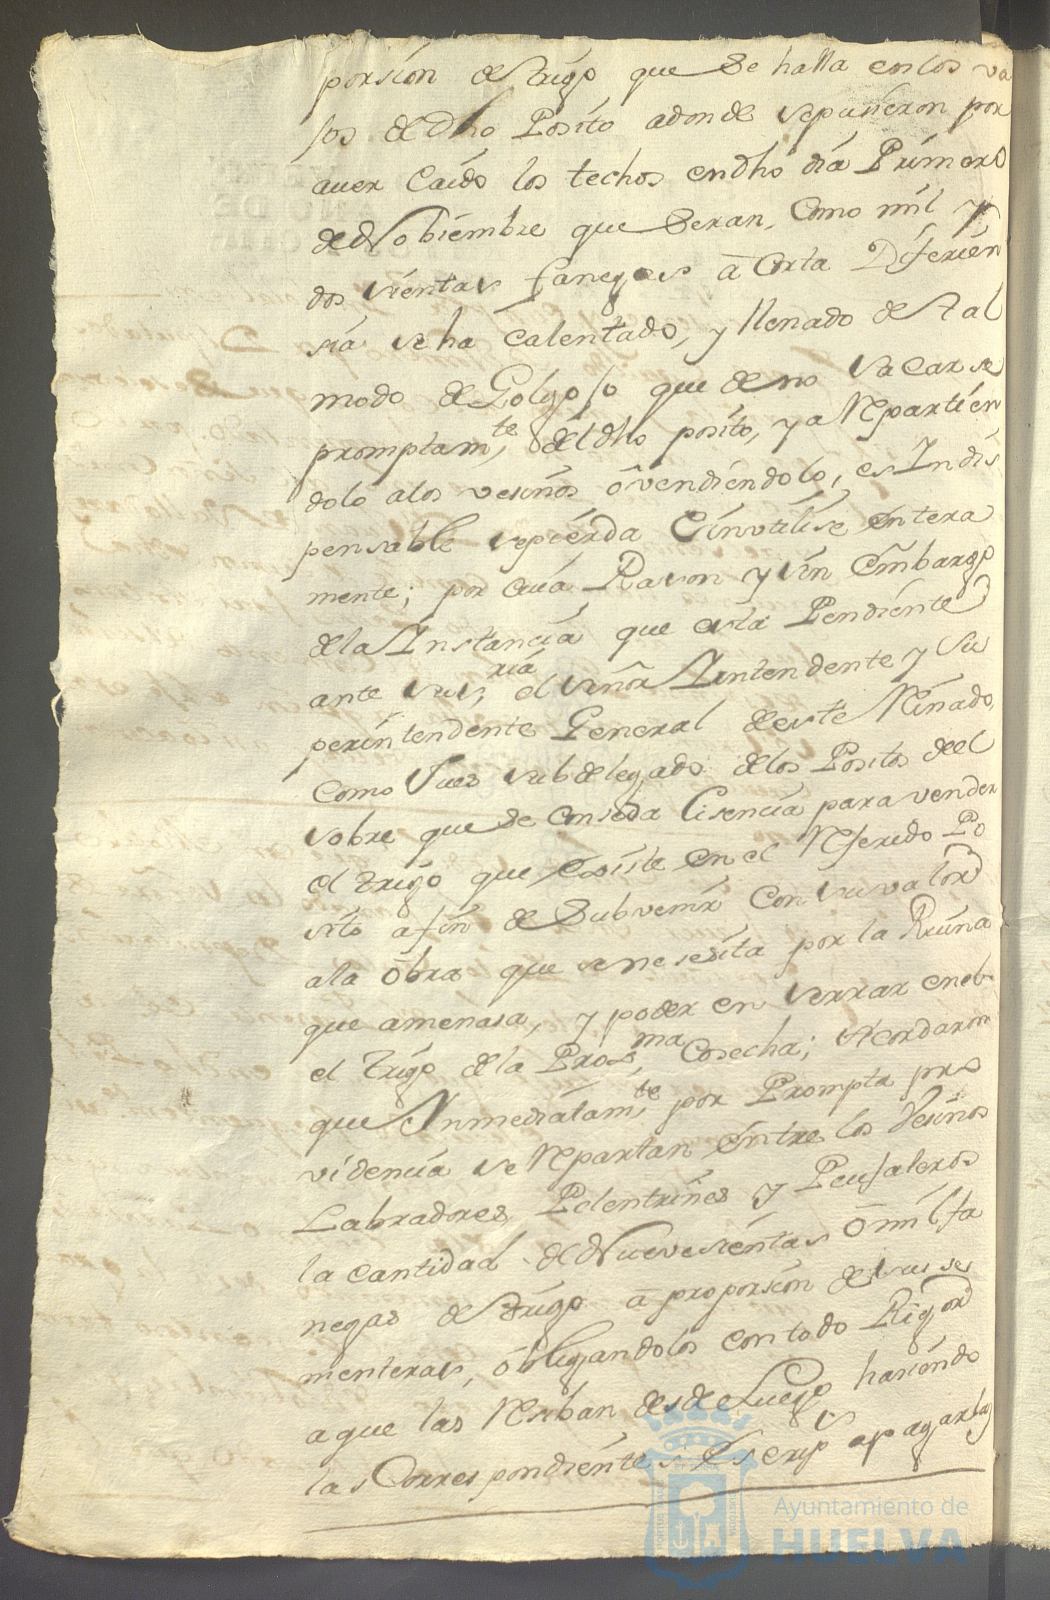 porsion de trigo que se halla en los va
sos de dho Posito adonde se pusieron por
auer Caido los techos en dho dia Primero
de Nobiembre que seran, Como mil y
dos sientas fanegas a Corta Diferien
sia se ha Calentado, y llenado de tal
modo de Golgoso que de no sacarse
promptamte, del dho posito, ya Repartien
dolo a los vesinos o vendiendolo, es Indis
pensable se pierda e inutilise entera
mente; por cuia Rason y sin embargo
de la Instancia que esta Pendiente
ante su sria, el señor Intendente y Su
perintendente General de este Reinado,
Como Jues subdelegado de los Positos de el
sobre que se conseda lisencia para vender
el trigo que existe en el Referido Po
sito a fin de Subvenir Con su valor
a la obra que se nesesita por la Ruina
que amenasa, y poder en serrar en el
el trigo de la Proxma Cosecha; Acordaron
que Inmediatamte, por Prompta pro
videncia se Repartan entre los Vesinos
Labradores, Pelentrines y Peujaleros
la cantidad de Nuevesientas o mil fa
negas de trigo a proporsion de sus se
menteras, obligandolos con todo Rigor
a que las Resiban desde Luego hasiendo
las Correspondientes Escrips a pagarlas
Ayuntamiento de
HUELVA